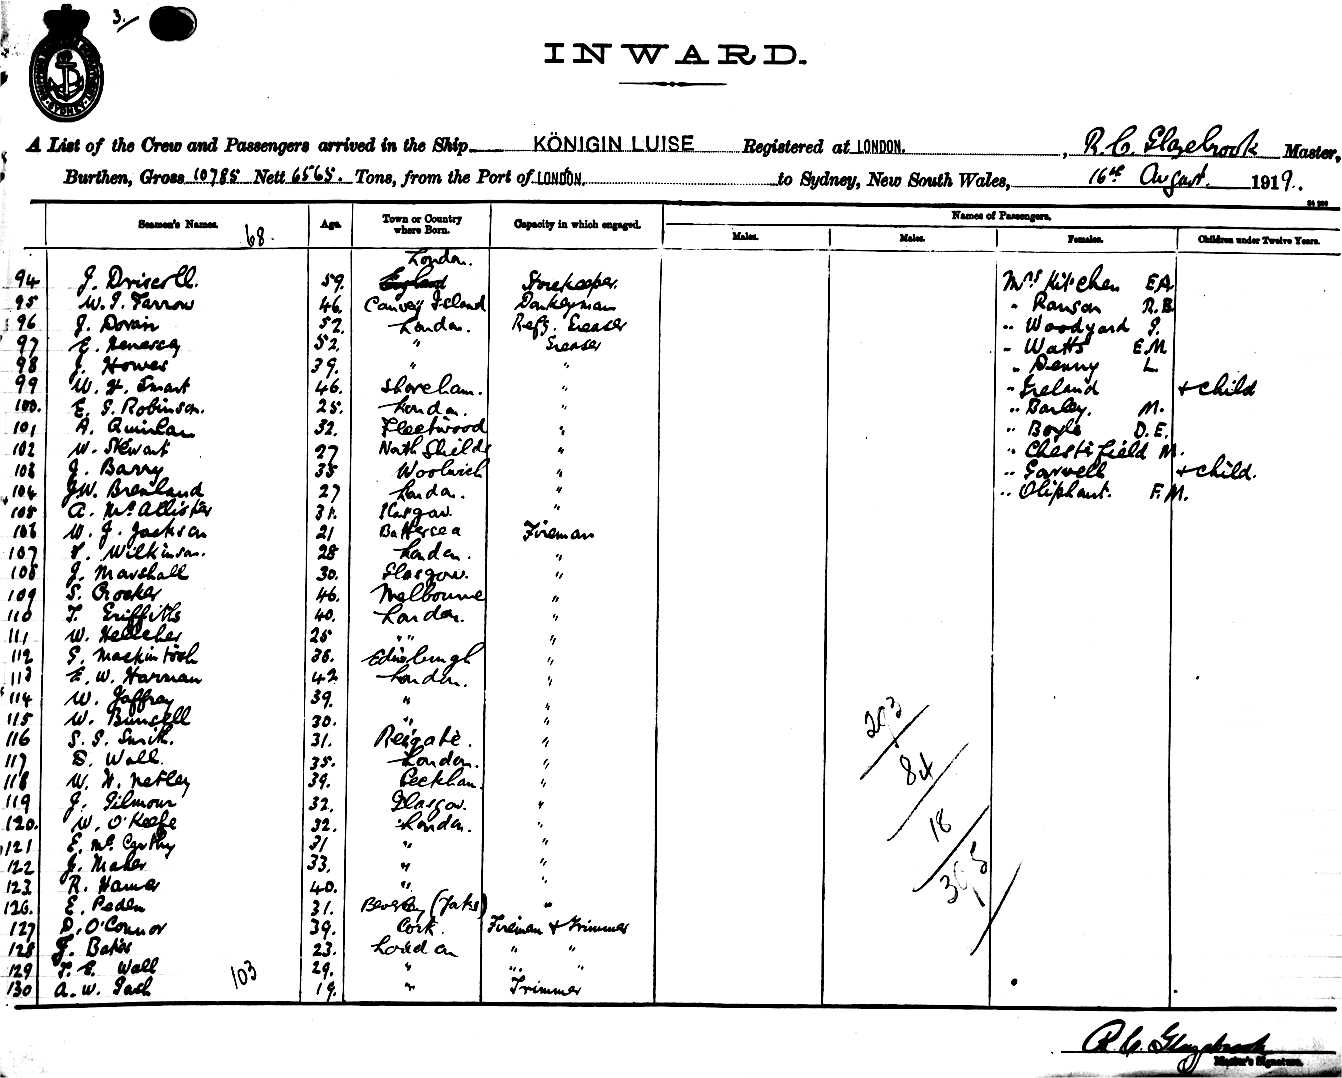 3.
SYDNEY
INWARD.
A List of the Crew and Passengers arrived in the Ship KÖNIGIN LUISE Registered at LONDON. , R. C. Glazebrook Master,
Burthen, Gross 10785 Nett 6565. Tons, from the Port of LONDON. to Sydney, New South Wales, 16th August. 1919.
Seamen's Names. 68. Age. Town or Country where Born. Capacity in which engaged. Names of Passengers.
Males. Males. Females. Children under Twelve Years.
London.
94 J. Driscoll. 59. England Storekeeper. Mrs Kitchen E A
95 W. J. Farrow 46. Canvey Island Donkeyman " Ranson R. B.
96 J. Doran 52. London. Refg. Greaser " Woodyard J.
97 E. 52. " Greaser " Watts E. M
98 J. Howes 39. " " " Denny L
99 W. H. Smart 46. Shoreham. " " Ireland + child
100. E. S. Robinson. 25. London. " " Barley. M.
101 A. Quinlan 32. Fleetwood " " Boyle D. E.
102 W. Stewart 27 North Shields " " Chesterfield M.
103 J. Barry 35 Woolwich " " Garvell + child.
104 J.W. Brenland 27 London. " " Oliphant. F. M.
105 A. McAllister 31. Glasgow. "
106 W. J. Jackson 21 Battersea Fireman
107 Wilkinson. 28 London. "
108 J. Marshall 30. Glasgow. "
109 S. Crocker 46. Melbourne "
110 T. Griffiths 40. London. "
111 W. Kelleher 25 " "
112 S. Mackintosh 36. Edinburgh "
113 E. W. Harman 42 London. "
114 W. Jaffray 39. " "
115 W. Bunsell 30. " "
116 S. S. Smith. 31. Reigate. "
117 D. Wall. 35. London. "
118 W. H. Netley 39. Peckham. "
119 J. Gilmour 32. Glasgow. "
120. W. O'Keefe 32. London. "
121 E. McCarthy 31 " "
122 J. Maher 33. " "
123 R. Hamer 40. " "
126. E. Peden 31. Beverley (Yorks) "
127 D. O'Connor 39. Cork. Fireman + Trimmer
128 J. Bates 23. London " "
129 T. E. Wall 29. " " "
130 A. W. 19. " Trimmer
103
293
84
18
395
R. C. Glazebrook
Master's Signature.